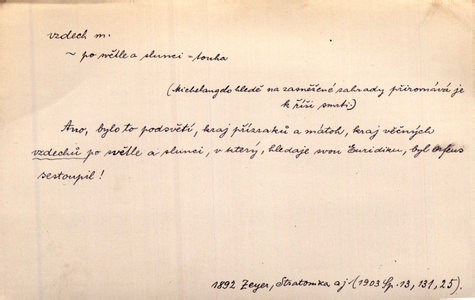 vzdech m.
~ po světle a slunci - touha
(Michelangelo hledě na zasněžené zahrady přirovnává je
k říši smrti:)
Ano, bylo to podsvětí, kraj přízraků a mátoh, kraj věčných
vzdechů po světle a slunci, v který, hledaje svou Euridiku, byl Orfeus
sestoupil!
1892 Zeyer, Stratonika aj. (1903 Sp. 13, 131, 25).